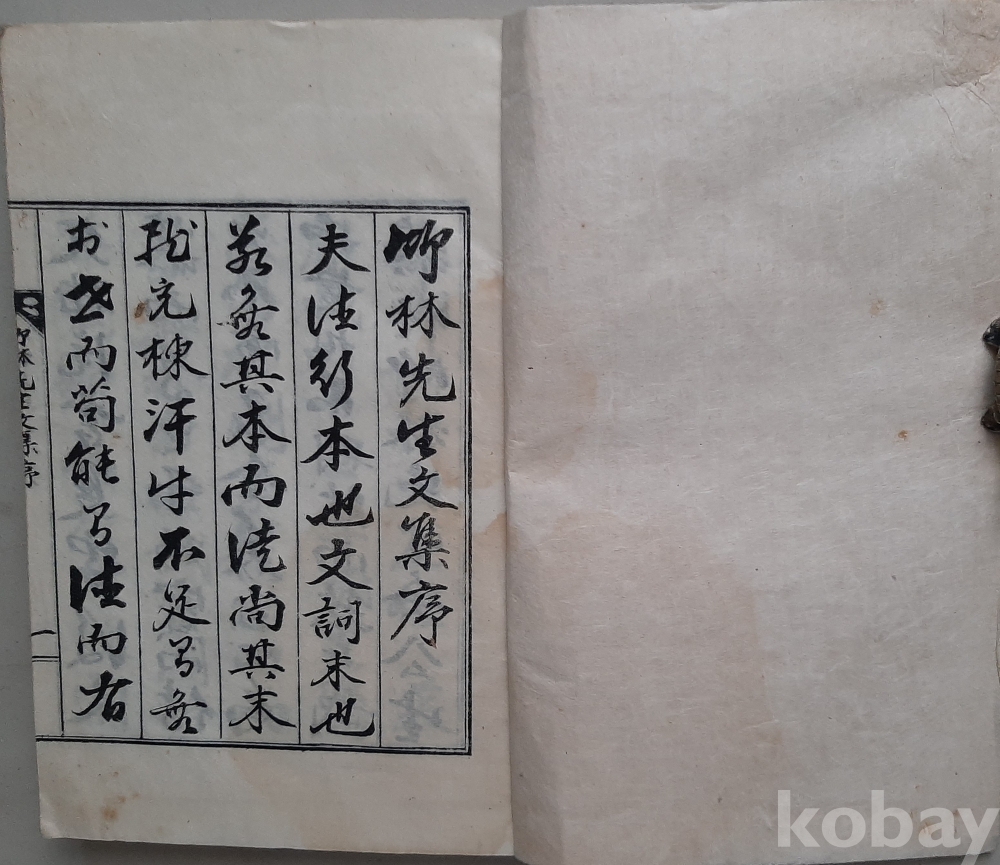 林先生文集序
夫德行本也文詞末也
若無其本而徒尚其末
雖充棟汗牛不足為無
於世而苟能為德而有
林先生文集序
一
kobay